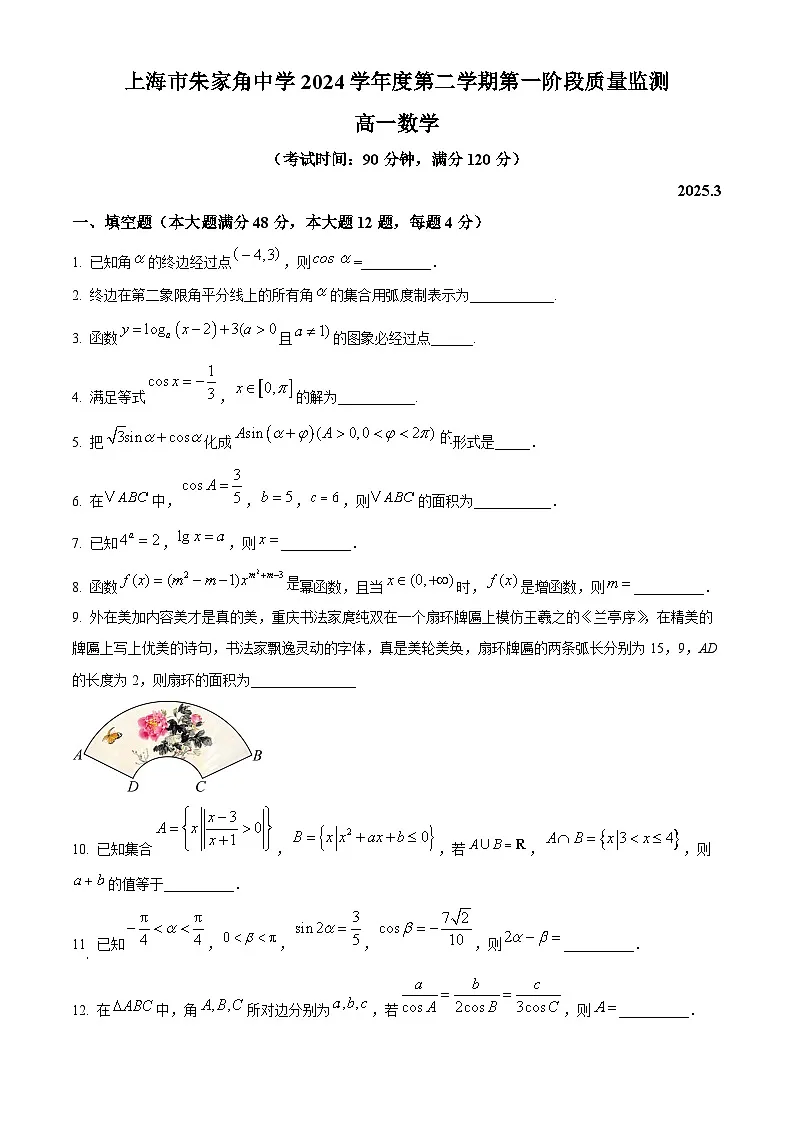 上海市朱家角中学2024学年度第二学期第一阶段质量监测
高一数学
（考试时间：90分钟，满分120分）
2025.3
一、填空题（本大题满分48分，本大题12题，每题4分）
1. 已知角α的终边经过点(−4,3)，则cos α=__________．
2. 终边在第二象限角平分线上的所有角α的集合用弧度制表示为____________.
3. 函数y=logₐ(x−2)+3(a>0且a≠1)的图象必经过点______.
4. 满足等式cos x=−1/3，x∈[0,π]的解为___________.
5. 把√3sinα+cosα化成Asin(α+φ)(A>0,0<φ<2π)的形式是_____．
6. 在▽ABC中，cos A=3/5，b=5，c=6，则▽ABC的面积为___________．
7. 已知4ᵃ=2，lg x=a，则x=__________．
8. 函数f(x)=(m²−m−1)x^(m²+m−3)是幂函数，且当x∈(0,+∞)时，f(x)是增函数，则m=__________．
9. 外在美加内容美才是真的美，重庆书法家庹纯双在一个扇环牌匾上模仿王羲之的《兰亭序》，在精美的
牌匾上写上优美的诗句，书法家飘逸灵动的字体，真是美轮美奂，扇环牌匾的两条弧长分别为15，9，AD
的长度为2，则扇环的面积为_______________
A
B
D
C
10. 已知集合A={x|(x−3)/(x+1)>0}，B={x|x²+ax+b≤0}，若A∪B=R，A∩B={x|3<x≤4}，则
a+b的值等于__________．
11. 已知−π/4<α<π/4，0<β<π，sin2α=3/5，cosβ=−7√2/10，则2α−β=__________．
12. 在ΔABC中，角A,B,C所对边分别为a,b,c，若a/cos A=b/2cos B=c/3cos C，则A=__________．